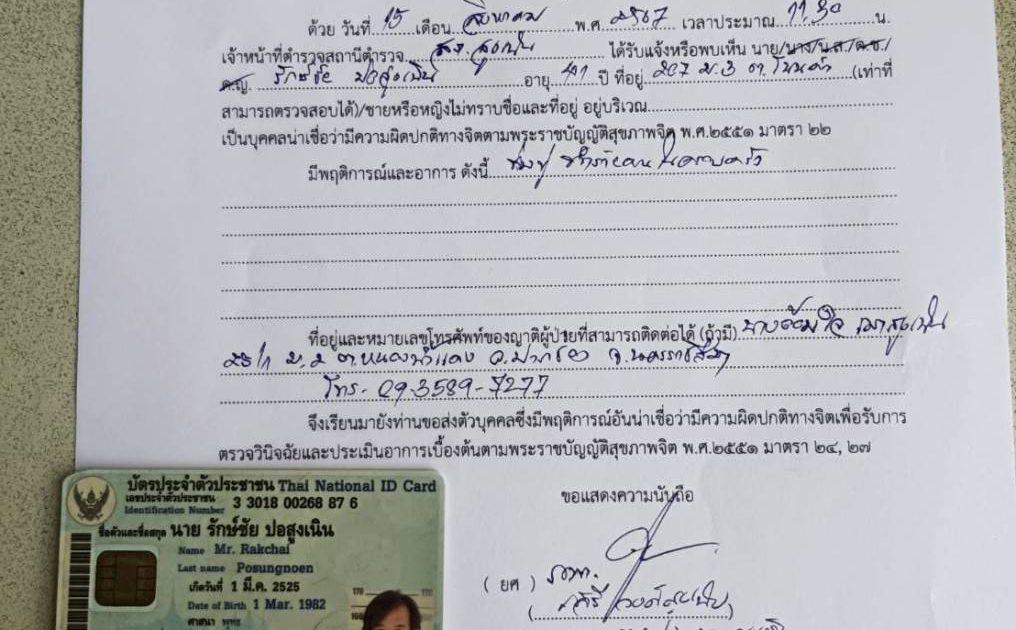 ด้วย วันที่ 15 เดือน สิงหาคม พ.ศ 2567 เวลาประมาณ 11.30 น.
เจ้าหน้าที่ตำรวจสถานีตำรวจ สภ. สูงเนิน ได้รับแจ้งหรือพบเห็น นาย/นาง/น.ส./ด.ช.
ด.ญ. รักษ์ชัย ปอสูงเนิน อายุ ปี ที่อยู่ 207 ม.3 ต. โนนค่า (เท่าที่
สามารถตรวจสอบได้)/ชายหรือหญิงไม่ทราบชื่อและที่อยู่ อยู่บริเวณ
เป็นบุคคลน่าเชื่อว่ามีความผิดปกติทางจิตตามพระราชบัญญัติสุขภาพจิต พ.ศ.๒๕๕๑ มาตรา ๒๒
มีพฤติการณ์และอาการ ดังนี้ ทำร้ายคนในครอบครัว
ที่อยู่และหมายเลขโทรศัพท์ของญาติผู้ป่วยที่สามารถติดต่อได้ (ถ้ามี) นาง
ม.2 ต.หนองน้ำแดง อ.ปากช่อง จ.นครราชสีมา
โทร. 09-3589-7277
จึงเรียนมายังท่านขอส่งตัวบุคคลซึ่งมีพฤติการณ์อันน่าเชื่อว่ามีความผิดปกติทางจิตเพื่อรับการ
ตรวจวินิจฉัยและประเมินอาการเบื้องต้นตามพระราชบัญญัติสุขภาพจิต พ.ศ.๒๕๕๑ มาตรา ๒๔, ๒๗
ขอแสดงความนับถือ
( ยศ )
บัตรประจำตัวประชาชน Thai National ID Card
เลขประจำตัวประชาชน 3 3018 00268 87 6
Identification Number
ชื่อตัวและชื่อสกุล นาย รักษ์ชัย ปอสูงเนิน
Name Mr. Rakchai
Last name Posungnoen
เกิดวันที่ 1 มี.ค. 2525
Date of Birth 1 Mar. 1982
ศาสนา พุทธ